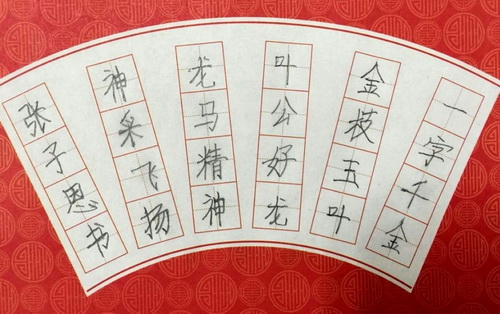 一字千金
金枝玉叶
叶公好龙
龙马精神
神采飞扬
张子恩书